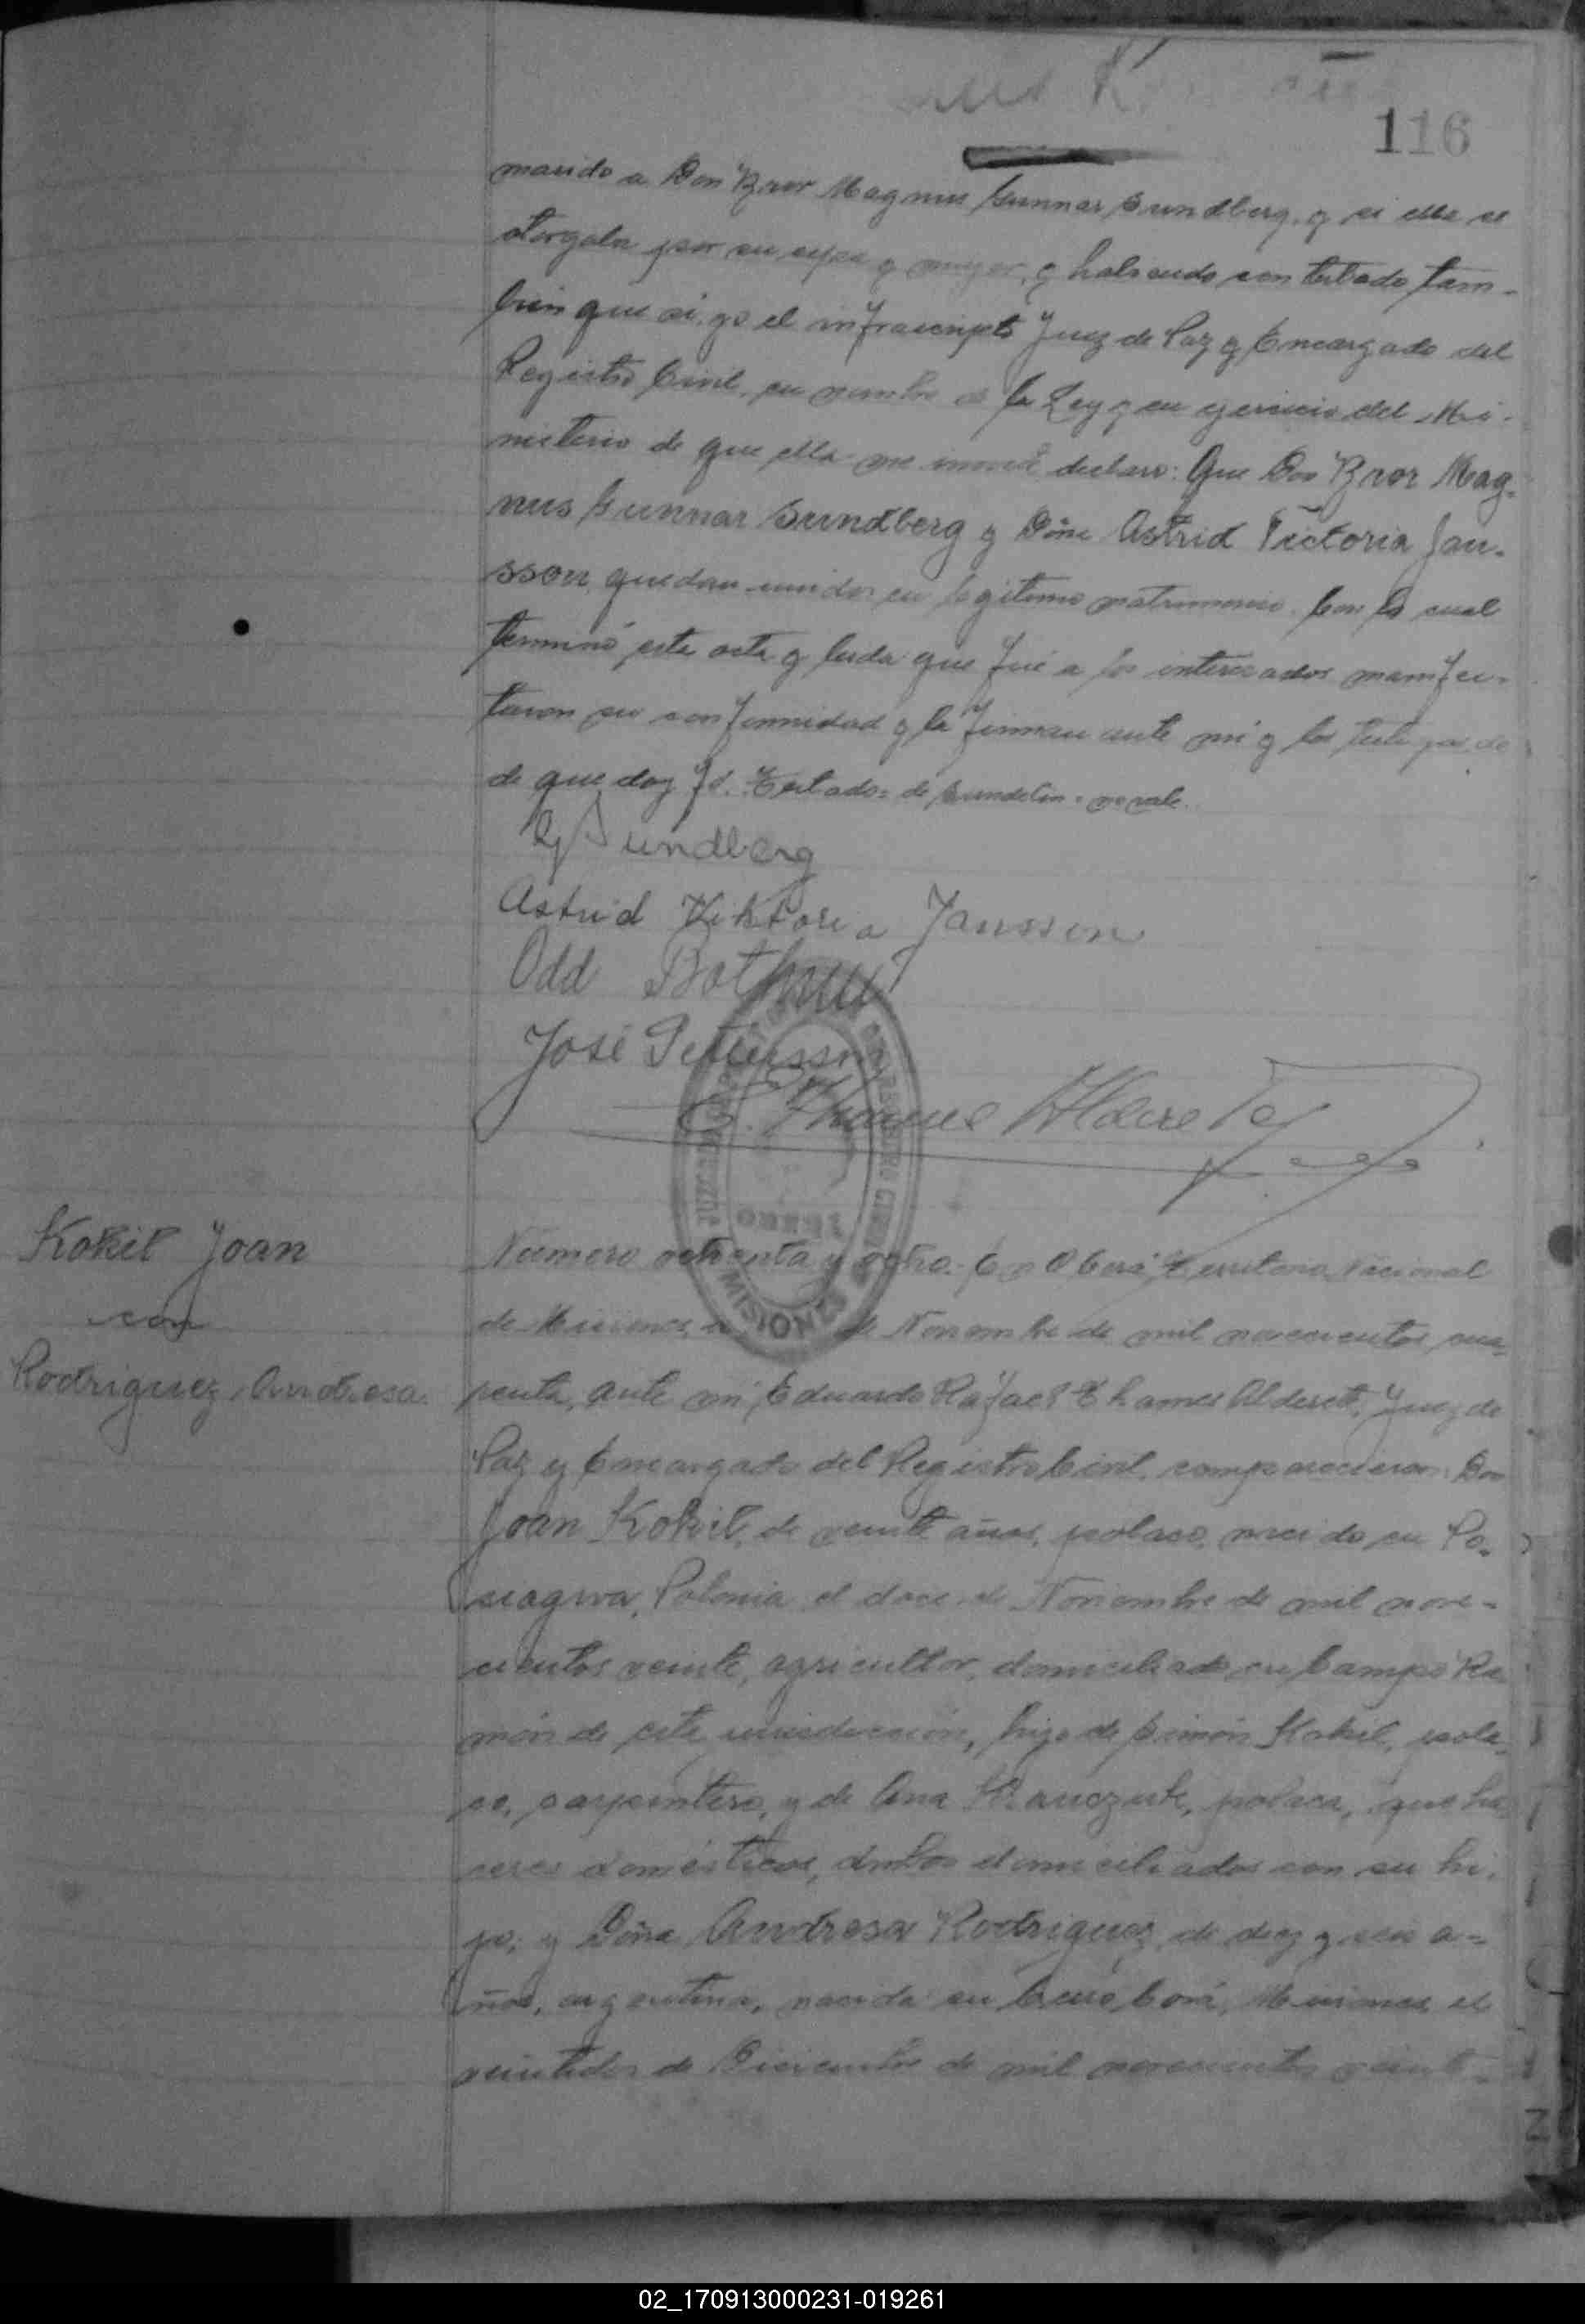 116
marido a Don Bror Magnus Gunnar Sundberg, y si ella se
otorgaba por su esposa y mujer, y habiendo contestado tam-
bien que si, yo el infrascripto Juez de Paz y Encargado del
Registro Civil, en nombre de la Ley y en ejercicio del Mi-
nisterio de que ella me inviste declaro: Que Don Bror Mag-
nus Gunnar Sundberg y Doña Astrid Victoria Jan-
sson, quedan unidos en legitimo matrimonio. Con lo cual
terminó este acta y leida que fué a los interesados manifes-
taron su conformidad y la firman ante mi y los testigos de
de que doy fé. Testado: de Sundelin - no vale.
G Sundberg
Astrid Viktoria Jansson
Odd
José Pettersson
E. Thames Alderete
Kokil Joan
con
Rodriguez Andresa.
Número ochenta y ocho. En Oberá Territorio Nacional
de Misiones, a de Noviembre de mil novecientos cua-
renta, ante mi Eduardo Rafael Thames Alderete, Juez de
Paz y Encargado del Registro Civil, comparecieron: Don
Joan Kokil, de veinte años, polaco, nacido en
Polonia el doce de Noviembre de mil nove-
cientos veinte, agricultor, domiciliado en Campo Ra-
món de esta jurisdicción, hijo de Simón Kokil, pola-
co, carpintero, y de Ana polaca, queha-
ceres domésticos, ambos domiciliados con su hi-
jo; y Doña Andresa Rodriguez, de diez y seis a-
ños, argentina, nacida en Misiones el
veintidos de Diciembre de mil novecientos veinti-
MISIONES
02_170913000231-019261